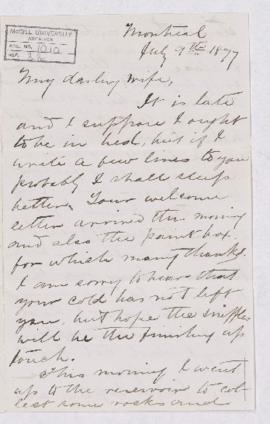 Montreal
July 9th 1897
McGILL UNIVERSITY
ARCHIVES
ACC. NO. 1010
REF.
My darling wife,
It is late
and I suppose I ought
to be in bed, but if I
write a few lines to you
probably I shall sleep
better. Your welcome
letter arrived this morning
and also the paint box,
for which many thanks.
I am sorry to hear that
your cold has not left
you, but hope the sniffles
will be the finishing up
touch.
This morning I went
up to the reservoir to col-
lect some rocks and